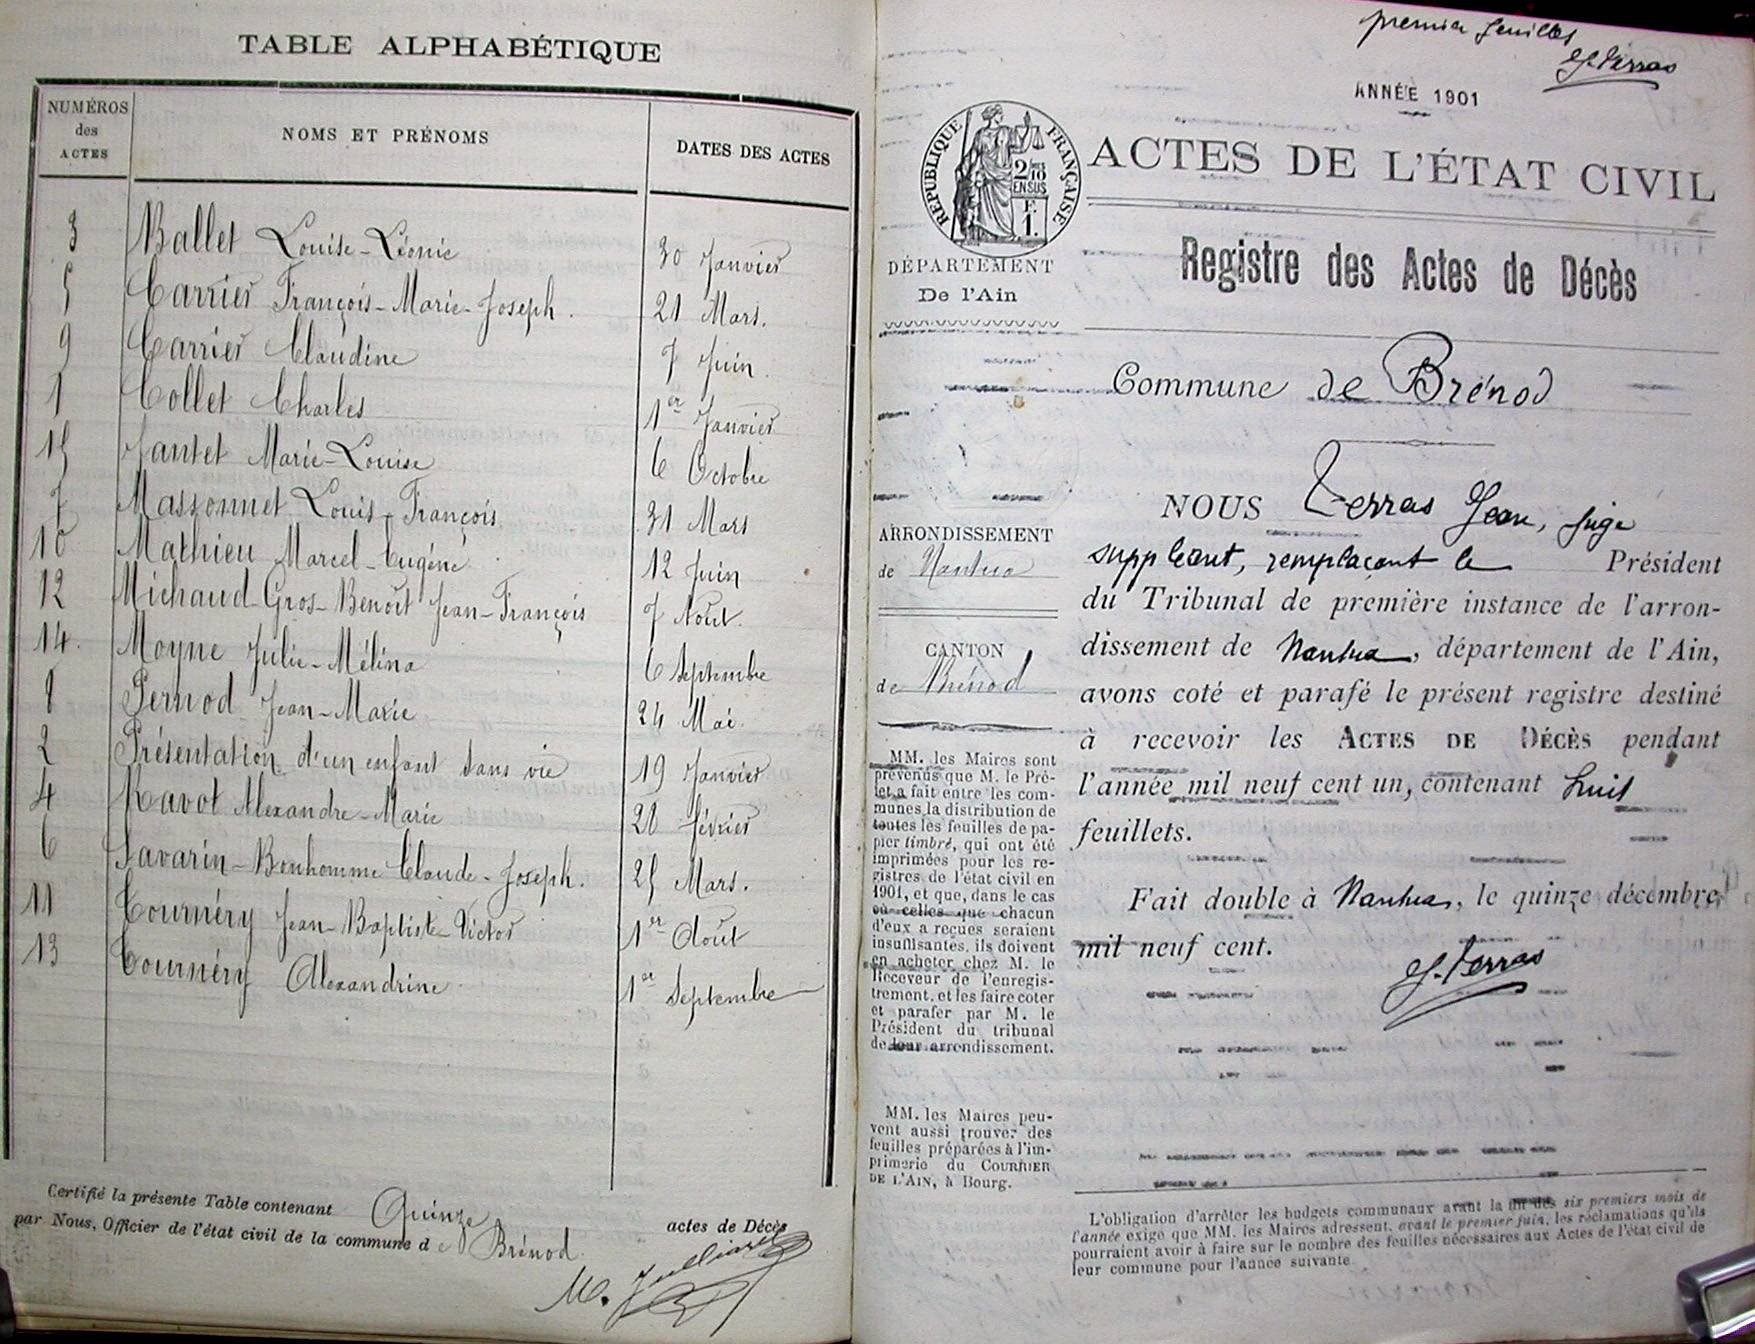 TABLE ALPHABÉTIQUE
NUMÉROS des ACTES
NOMS ET PRÉNOMS
DATES DES ACTES
3 Ballet Louise-Léonie 30 Janvier
5 Carrier François-Marie-Joseph. 21 Mars.
9 Carrier Claudine 7 Juin.
1 Collet Charles 1er Janvier
15 Jantet Marie-Louise 6 Octobre
7 Massonnet Louis-François 31 Mars
10 Mathieu Marcel-Eugène 12 Juin
12 Michaud-Gros-Benoît Jean-François 7 Août.
14. Moyne Julie-Mélina 6 Septembre
8 Pernod Jean-Marie 24 Mai.
2 Présentation d'un enfant sans vie 19 Janvier
4 Ravot Alexandre-Marie 28 février
6 Savarin-Bonhomme Claude-Joseph. 25 Mars.
11 Tournéry Jean-Baptiste-Victor 1er Août
13 Tournéry Alexandrine 1er Septembre
Certifié la présente Table contenant Quinze actes de Décès
par Nous, Officier de l'état civil de la commune de Brénod
M. Julliard
premier feuillet
J. Verras
ANNÉE 1901
RÉPUBLIQUE FRANÇAISE
2/10
EN SUS
F.
1.
ACTES DE L'ÉTAT CIVIL
DÉPARTEMENT
De l'Ain
Registre des Actes de Décès
Commune de Brénod
ARRONDISSEMENT
de Nantua
CANTON
de Brénod
MM. les Maires sont
prévenus que M. le Pré-
fet a fait entre les com-
munes la distribution de
toutes les feuilles de pa-
pier timbré, qui ont été
imprimées pour les re-
gistres de l'état civil en
1901, et que, dans le cas
où celles que chacun
d'eux a reçues seraient
insuffisantes, ils doivent
en acheter chez M. le
Receveur de l'enregis-
trement, et les faire coter
et parafer par M. le
Président du tribunal
de leur arrondissement.
MM. les Maires peu-
vent aussi trouver des
feuilles préparées à l'im-
primerie du COURRIER
DE L'AIN, à Bourg.
NOUS Verras Jean, juge
suppléant, remplaçant le Président
du Tribunal de première instance de l'arron-
dissement de Nantua, département de l'Ain,
avons coté et parafé le présent registre destiné
à recevoir les ACTES DE DÉCÈS pendant
l'année mil neuf cent un, contenant huit
feuillets.
Fait double à Nantua, le quinze décembre
mil neuf cent.
J. Verras
L'obligation d'arrêter les budgets communaux avant la fin des six premiers mois de
l'année exige que MM. les Maires adressent, avant le premier juin, les réclamations qu'ils
pourraient avoir à faire sur le nombre des feuilles nécessaires aux Actes de l'état civil de
leur commune pour l'année suivante.